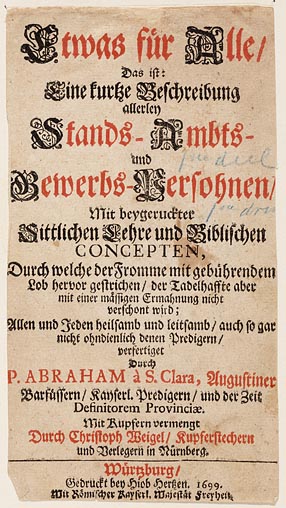 Etwas für Alle/
Das ist:
Eine kurtze Beschreibung
allerley
Stands- Ambts-
und
Gewerbs-Persohnen/
Mit beygeruckter
Sittlichen Lehre und Biblischen
CONCEPTEN,
Durch welche der Fromme mit gebührendem
Lob hervor gestrichen/ der Tadelhaffte aber
mit einer mässigen Ermahnung nicht
verschont wird;
Allen und Jeden heilsamb und leitsamb/ auch so gar
nicht ohndienlich denen Predigern/
verfertiget
Durch
P. ABRAHAM à S. Clara, Augustiner
Barfüssern/ Kayserl. Predigern/ und der Zeit
Definitorem Provinciæ.
Mit Kupfern vermengt
Durch Christoph Weigel/ Kupferstechern
und Verlegern in Nürnberg.
Würtzburg/
Gedruckt bey Hiob Hertzen. 1699.
Mit Römischer Kayserl. Majestät Freyheit.